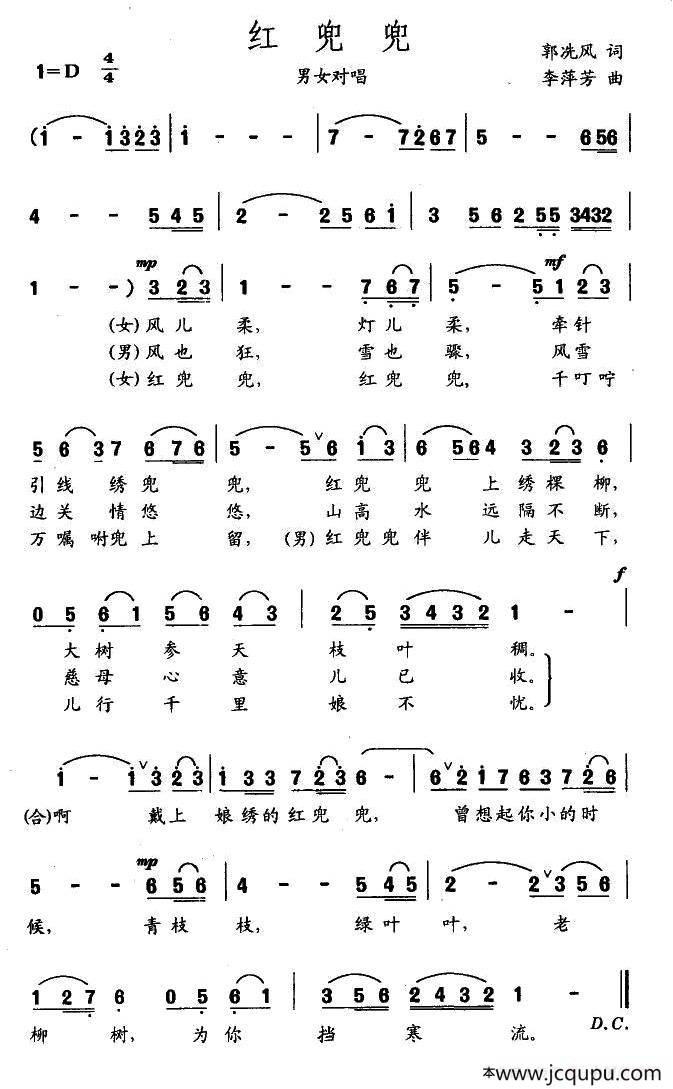 红兜兜
1=D 4/4 男女对唱 郭冼风 词
李萍芳 曲
(i - i323 | i - - - | 7 - 7267 | 5 - - 656 |
4 - - 545 | 2 - 256i | 3 56 255 3432 |
mp mf
1 - -) 323 | 1 - - 767 | 5 - 51 23 |
(女)风儿柔, 灯儿柔, 牵针
(男)风也狂, 雪也骤, 风雪
(女)红兜兜, 红兜兜, 千叮咛
56 37 676 | 5 - 5∨6 i3 | 6 564 323 6 |
引线绣兜兜, 红兜兜上绣棵柳,
边关情悠悠, 山高水远隔不断,
万嘱咐兜上留, (男)红兜兜伴儿走天下,
f
05 61 56 43 | 25 3432 1 - |
大树参天枝叶稠。
慈母心意儿已收。
儿行千里娘不忧。
i - i∨323 | i33 723 6 - | 6∨2 i763 726 |
(合)啊 戴上娘绣的红兜兜, 曾想起你小的时
mp
5 - - 656 | 4 - - 545 | 2 - 2∨3 56 |
候, 青枝枝, 绿叶叶, 老
127 6 05 61 | 356 2432 1 - ‖
柳树, 为你挡寒流。 D.C.
本www.jcqupu.com